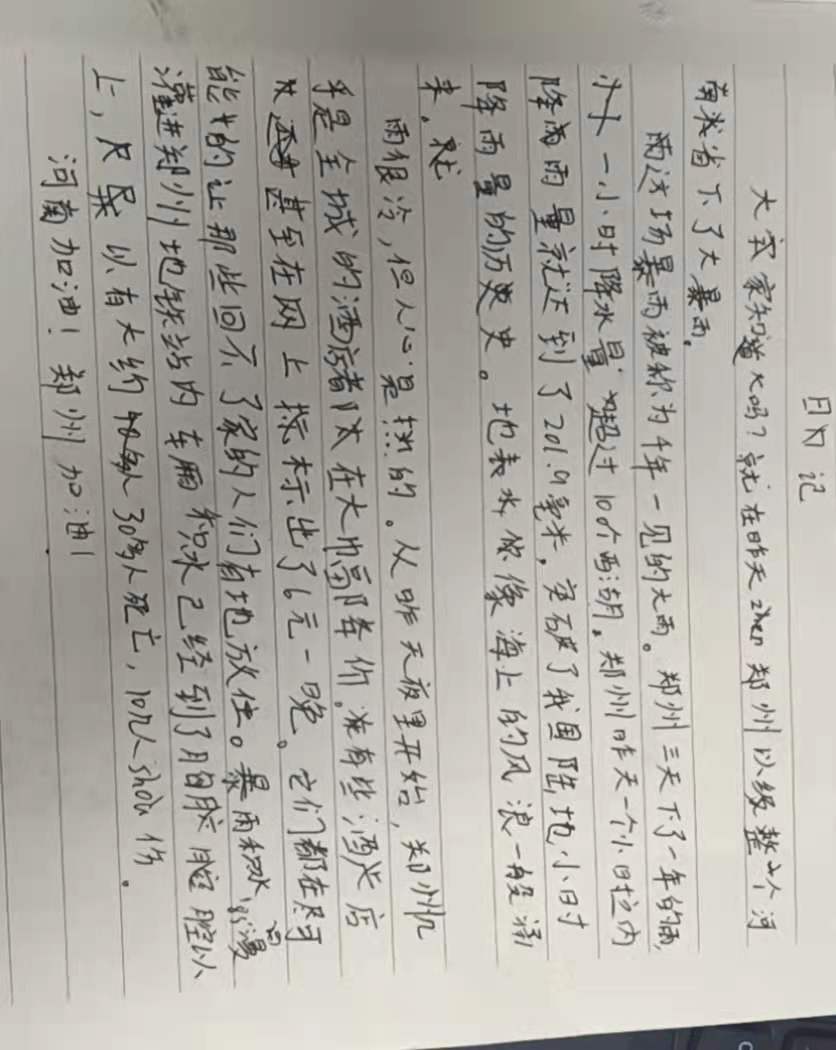 日记
大家知道吗？就在昨天zhen郑州以级整个河
南省下了大暴雨。
这场暴雨被称为千年一见的大雨。郑州三天下了一年的雨，
一小时降水量超过10个西湖。郑州昨天一个小时内
降雨量就达到了201.9毫米，突破了我国陆地小时
降雨量的历史。地表水像海上的风浪一般涌
来，
雨很冷，但人心是热的。从昨天夜里开始，郑州几
乎是全城的酒店都在大幅降价。有些酒店
甚至在网上标出了6元一晚。它们都在尽可
能的让那些回不了家的人们有地放住。暴雨积水漫
灌进郑州地铁站内车厢积水已经到了胸腔以
上，以有大约30多人死亡，10几人shou伤。
河南加油！郑州加油！